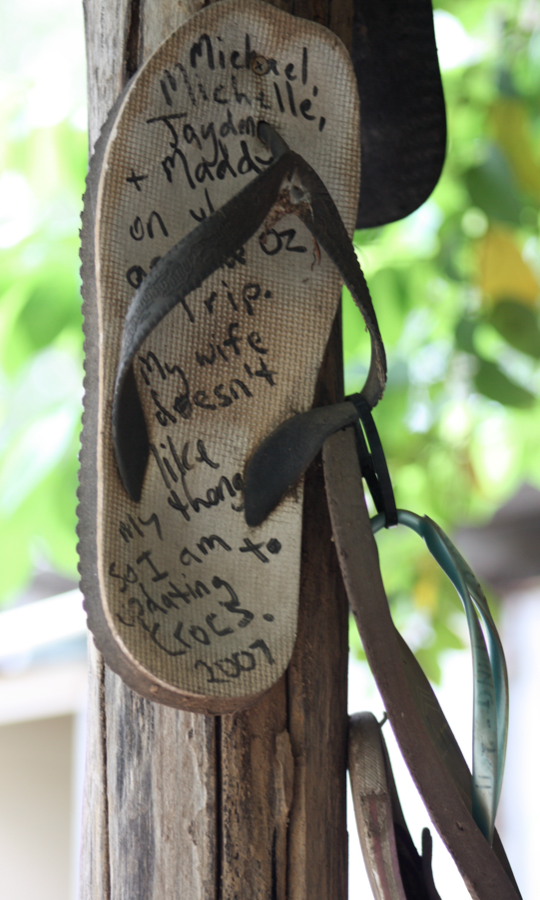 Michael,
Michelle,
Jayden
+ Maddy
on
Oz
Trip.
My wife
doesn't
like
my thongs
so I am to
updating
Crocs.
2007